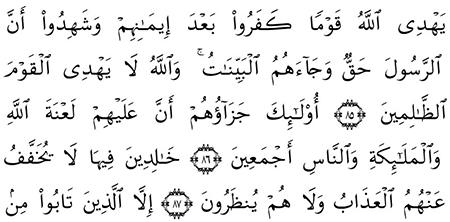 يَهْدِى ٱللَّهُ قَوْمًا كَفَرُوا۟ بَعْدَ إِيمَـٰنِهِمْ وَشَهِدُوٓا۟ أَنَّ
ٱلرَّسُولَ حَقٌّ وَجَآءَهُمُ ٱلْبَيِّنَـٰتُ ۚ وَٱللَّهُ لَا يَهْدِى ٱلْقَوْمَ
ٱلظَّـٰلِمِينَ ﴿٨٥﴾ أُو۟لَـٰٓئِكَ جَزَآؤُهُمْ أَنَّ عَلَيْهِمْ لَعْنَةَ ٱللَّهِ
وَٱلْمَلَـٰٓئِكَةِ وَٱلنَّاسِ أَجْمَعِينَ ﴿٨٦﴾ خَـٰلِدِينَ فِيهَا لَا يُخَفَّفُ
عَنْهُمُ ٱلْعَذَابُ وَلَا هُمْ يُنظَرُونَ ﴿٨٧﴾ إِلَّا ٱلَّذِينَ تَابُوا۟ مِنۢ